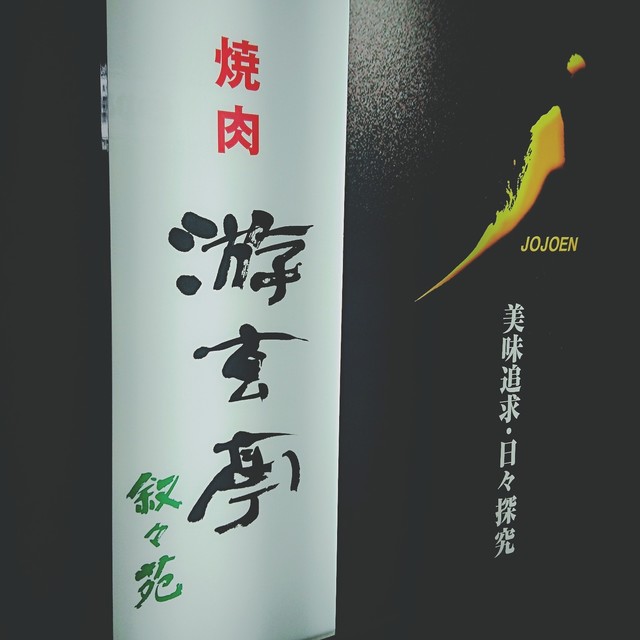 焼肉
游玄亭
叙々苑
JOJOEN
美味追求・日々探究